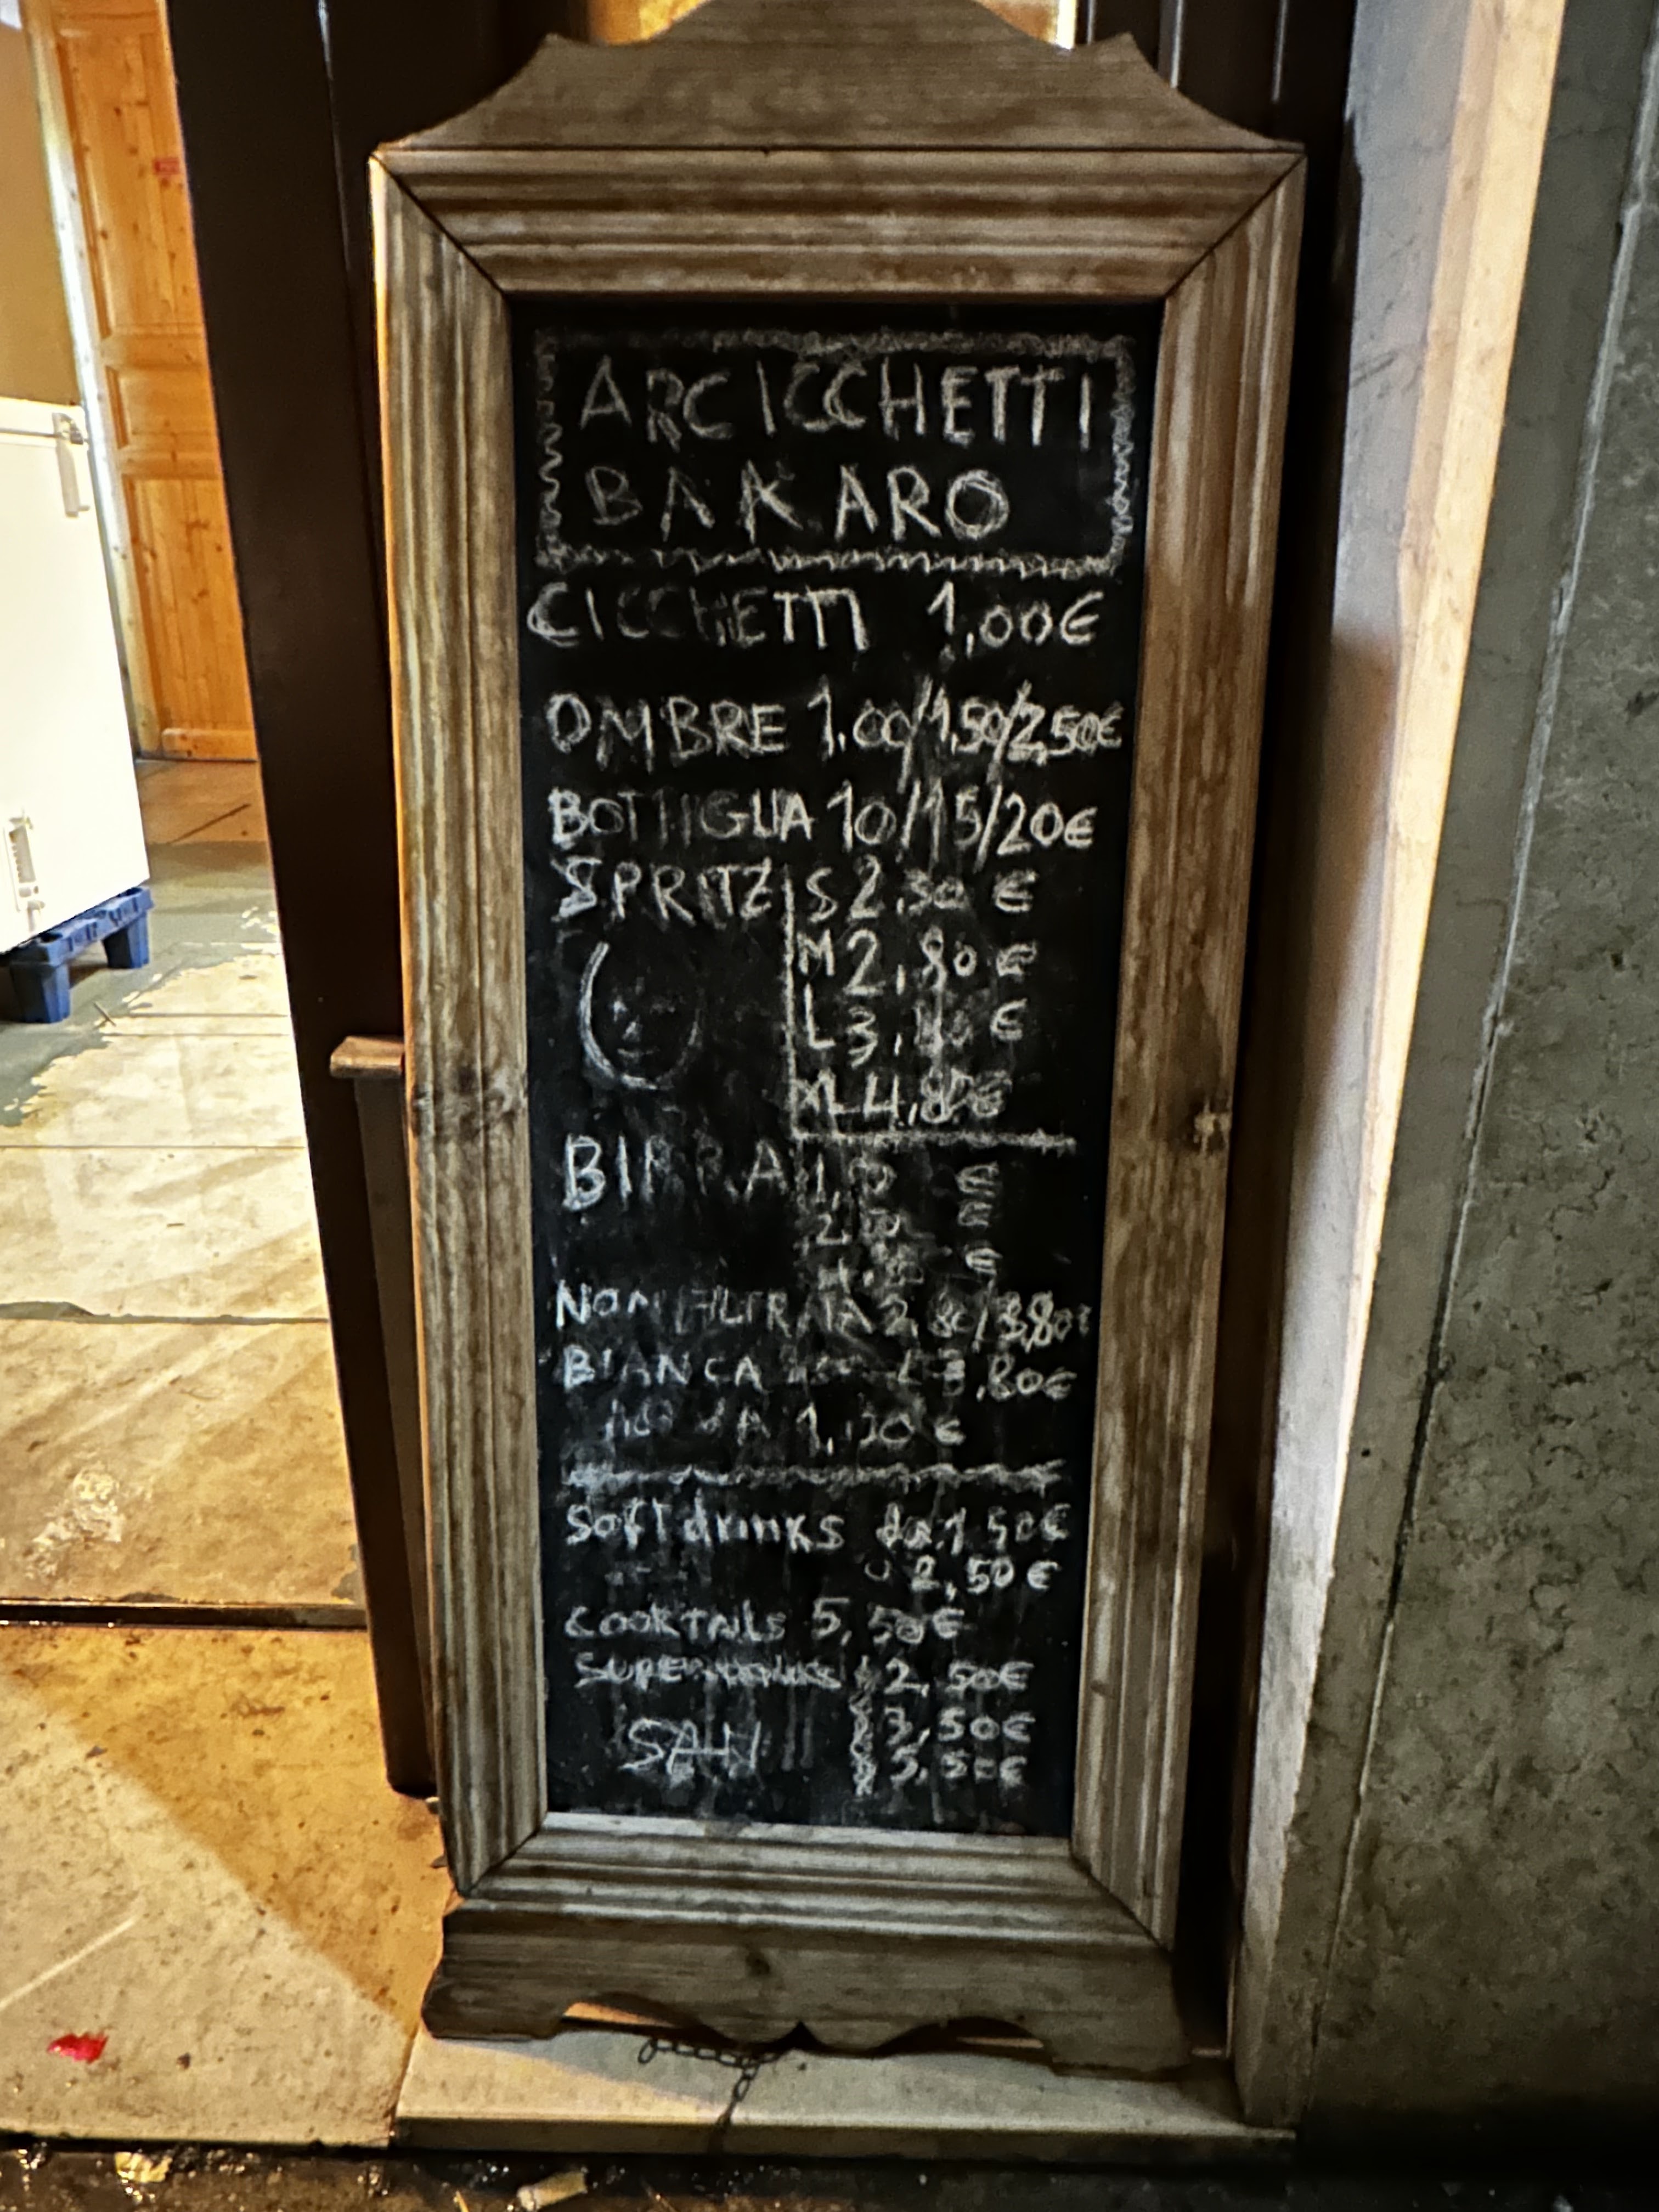 ARCICCHETTI
BAKARO
CICCHETTI 1,00€
OMBRE 1.00/1,50/2,50€
BOTTIGLIA 10/15/20€
SPRITZ S 2,30 €
M 2,80 €
L 3, €
XL 4,80€
BIRRA €
€
€
NON FILTRATA 2,80/3,80€
BIANCA 3,80€
ACQUA 1,00 €
Soft drinks da 1,50€
2,50€
COOKTAILS 5,50€
2,50€
3,50€
5,50€